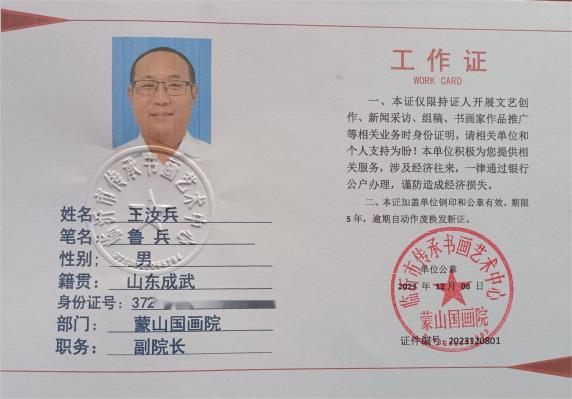 姓名: 王汝兵
笔名: 鲁 兵
性别: 男
籍贯: 山东成武
身份证号: 372
部门: 蒙山国画院
职务: 副院长
临沂市传承书画艺术中心
工作证
WORK CARD
一、本证仅限持证人开展文艺创
作、新闻采访、组稿、书画家作品推广
等相关业务时身份证明，请相关单位和
个人支持为盼！本单位积极为您提供相
关服务，涉及经济往来，一律通过银行
公户办理，谨防造成经济损失。
二、本证加盖单位钢印和公章有效，期限
5年，逾期自动作废换发新证。
单位公章
2023 年 12 月 08 日
临沂市传承书画艺术中心
蒙山国画院
证件编号: 2023120801